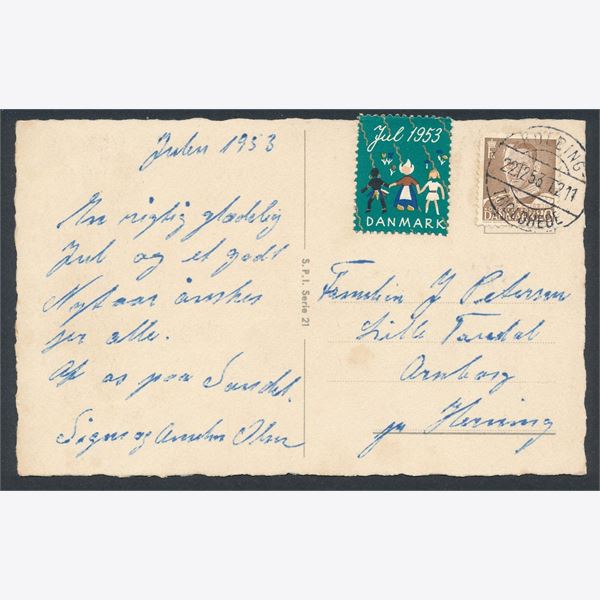 Julen 1953
En rigtig glædelig
Jul og et godt
Nytaar ønskes
jer alle.
Af os paa Sandet.
Signe og Olsen
S.P.I. Serie 21
Jul 1953
DANMARK
DANMARK
22.12.53
Familien J Petersen
Lille Tandal
Arnborg
pr Herning